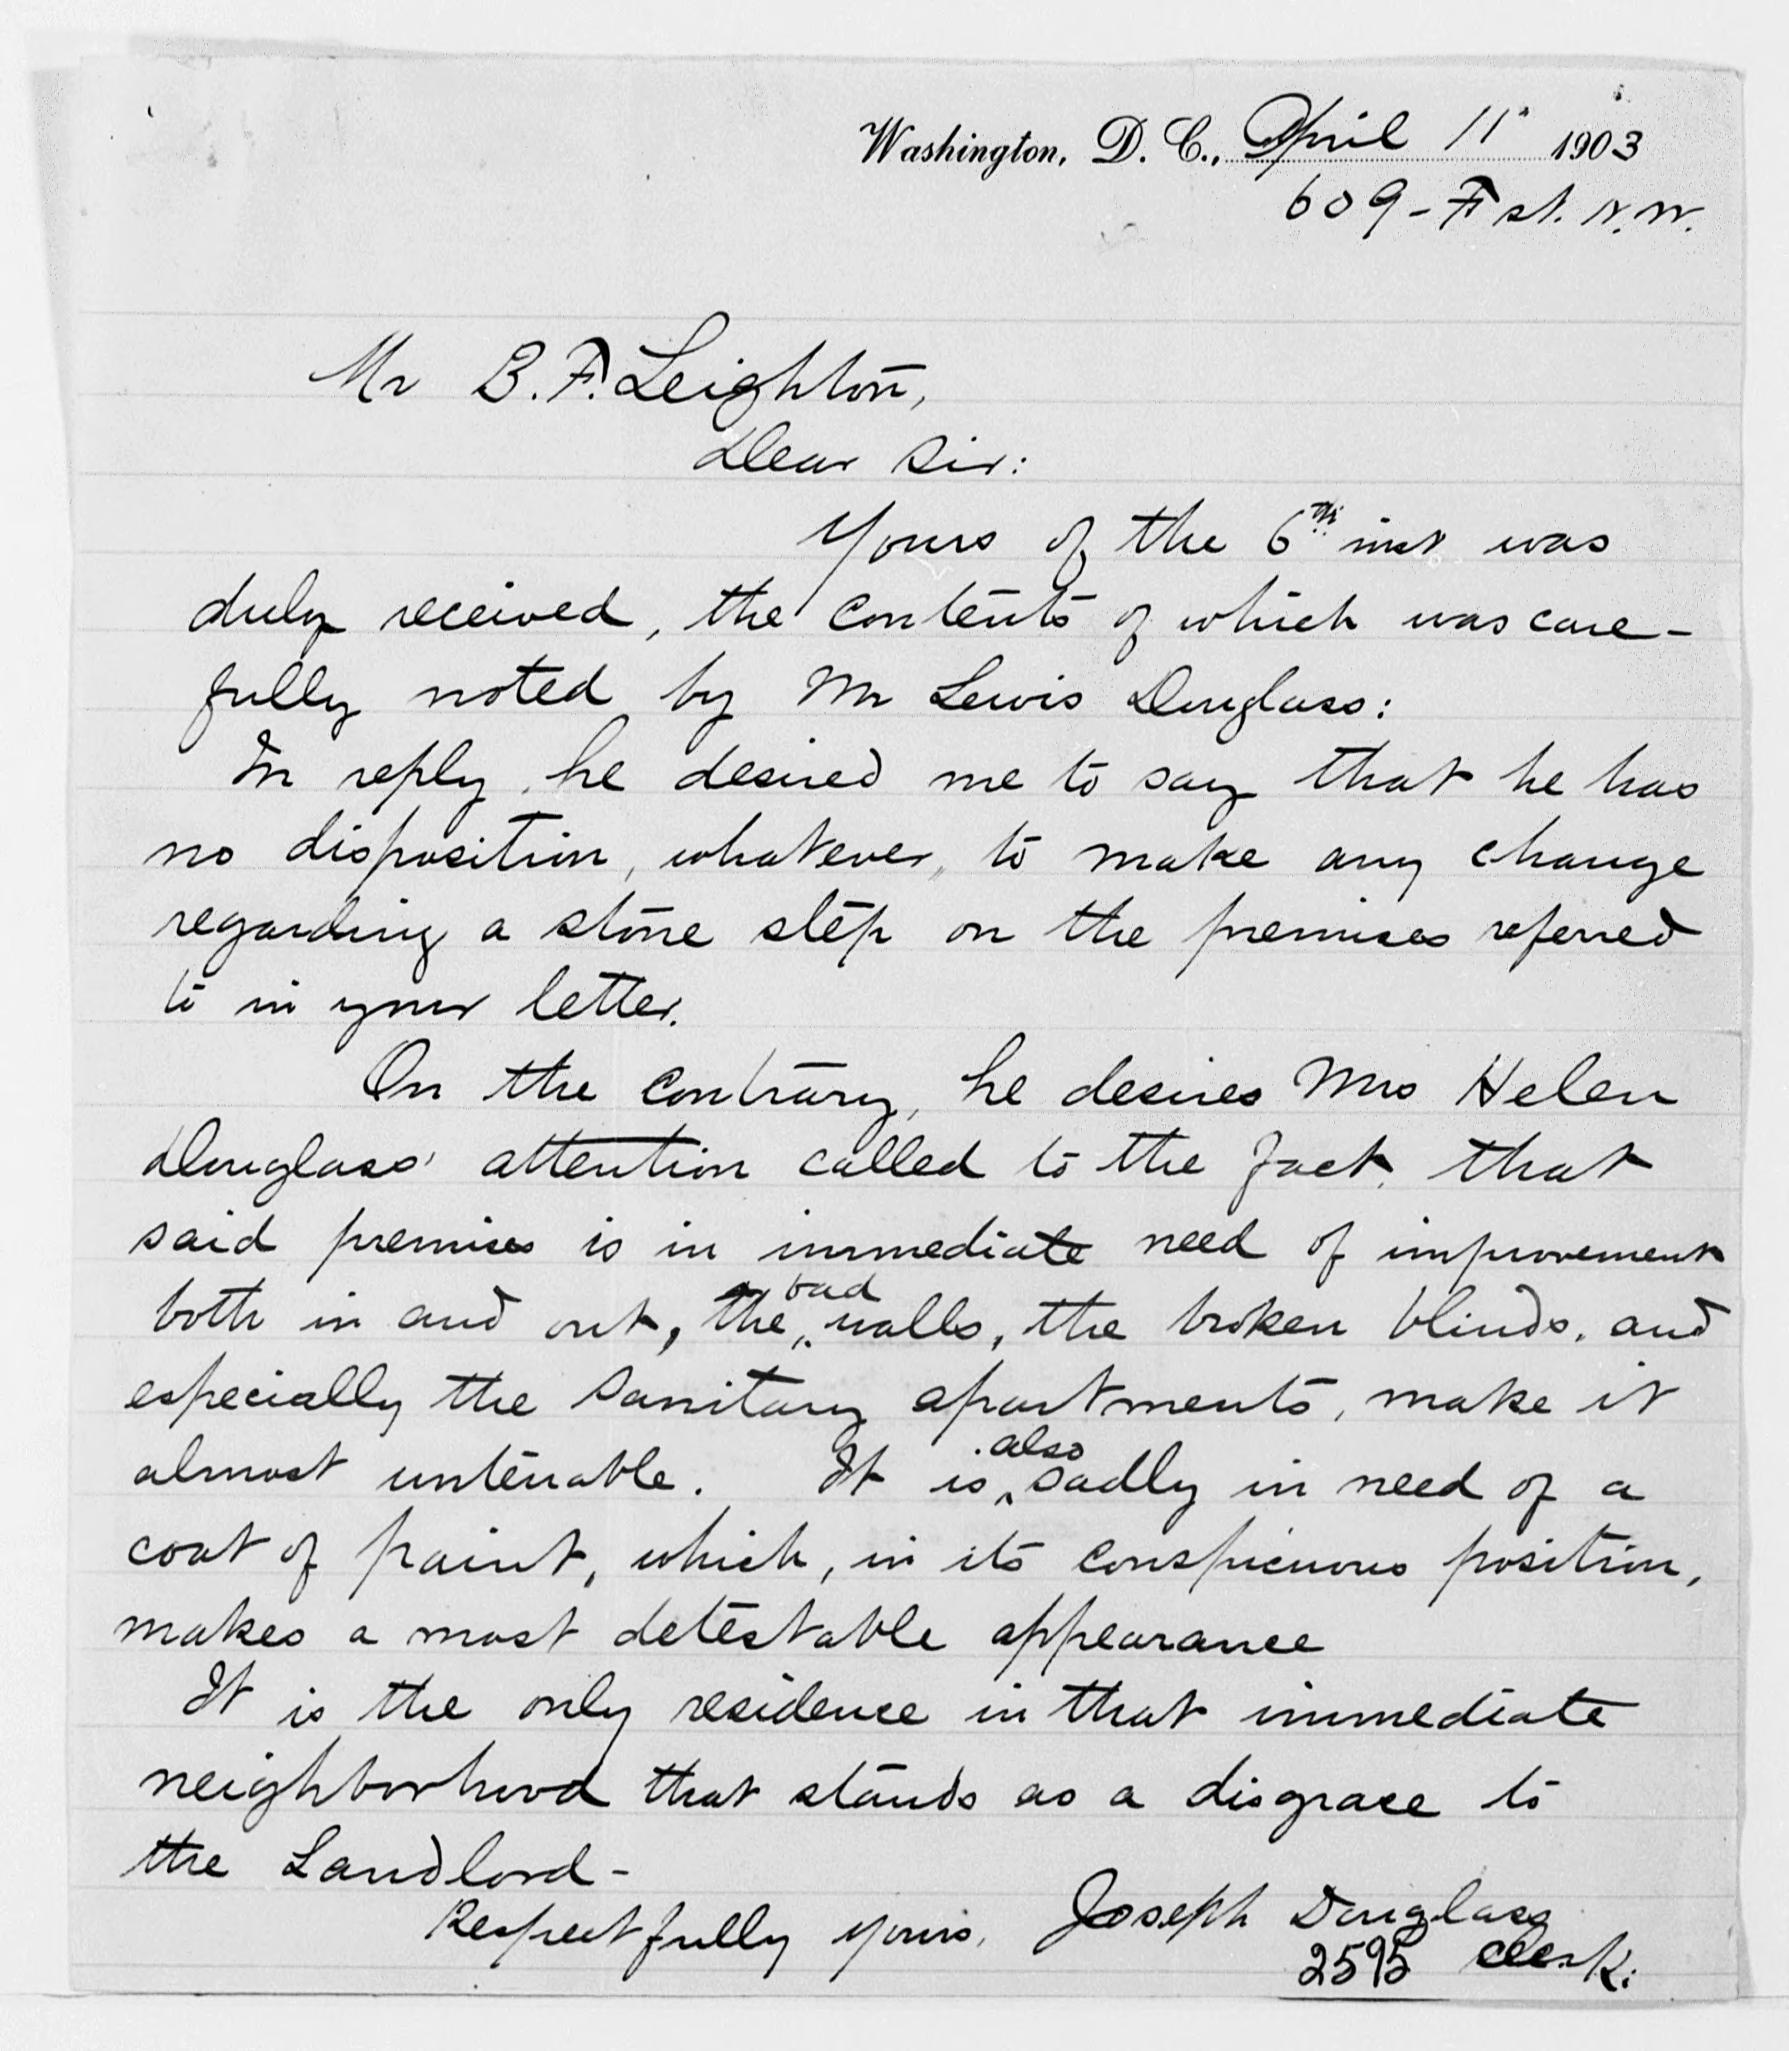 Washington, D. C., April 11" 1903
609 - F st. N.W.
Mr B. F. Leighton,
Dear Sir:
Yours of the 6th inst was
duly received, the contents of which was care-
fully noted by Mr Lewis Douglass:
In reply, he desired me to say that he has
no disposition, whatever, to make any change
regarding a stone step on the premises referred
to in your letter.
On the contrary, he desires Mrs Helen
Douglass' attention called to the fact, that
said premises is in immediate need of improvement
both in and out, the bad walls, the broken blinds, and
especially the sanitary apartments, make it
almost untenable. It is also sadly in need of a
coat of paint, which, in its conspicuous position,
makes a most detestable appearance
It is the only residence in that immediate
neighborhood that stands as a disgrace to
the Landlord -
Respectfully yours, Joseph Douglass
2595 Clerk.